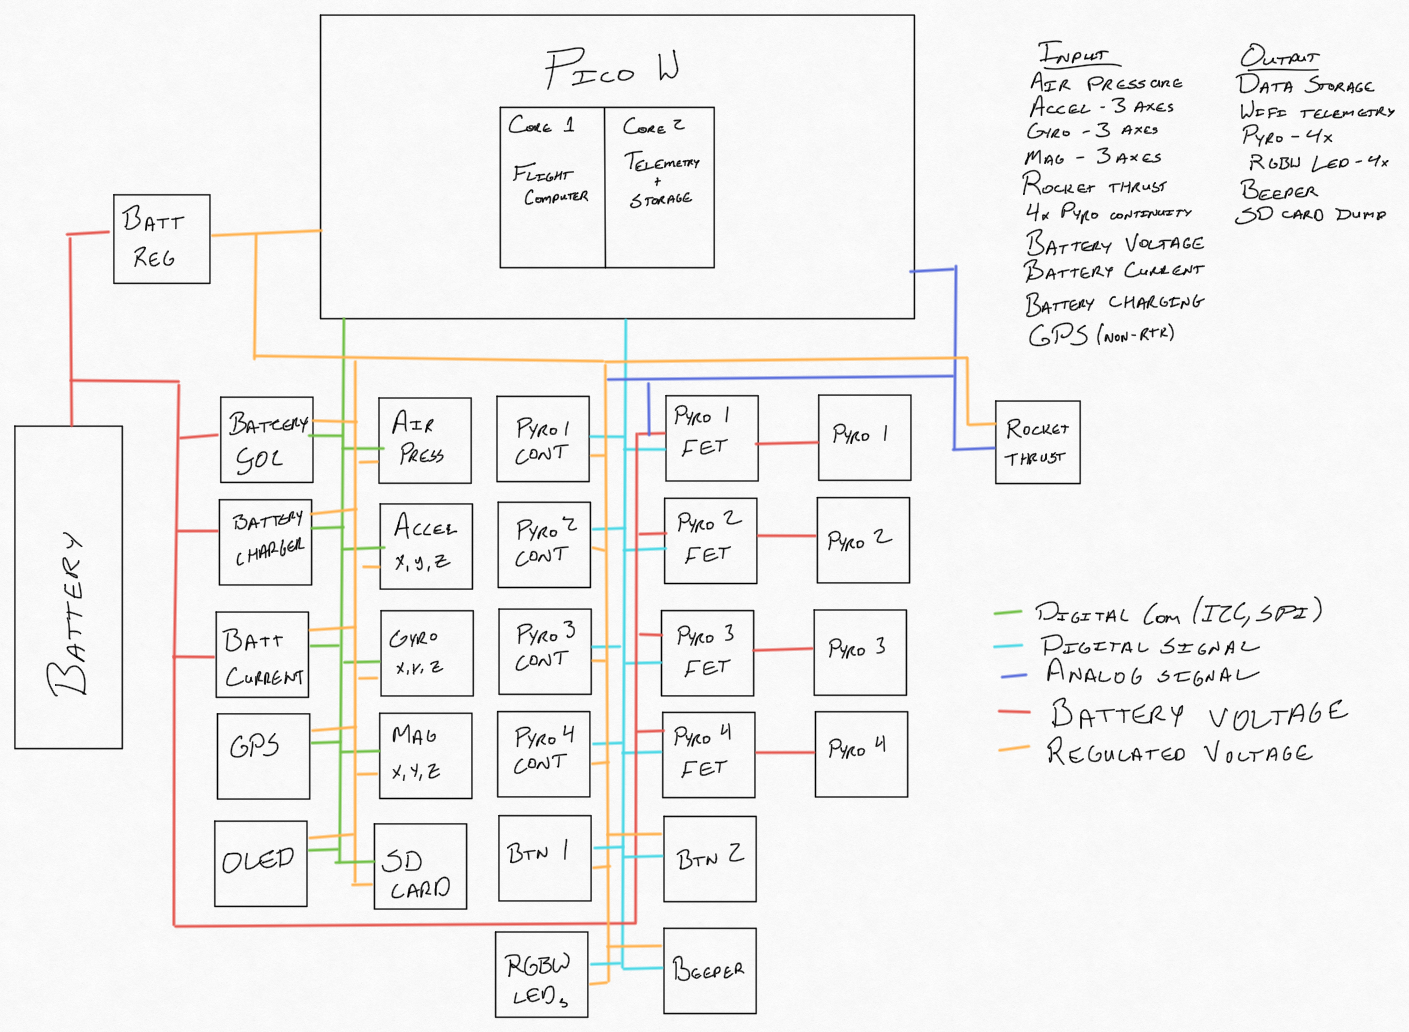 PICO W
CORE 1
FLIGHT
COMPUTER
CORE 2
TELEMETRY
+
STORAGE
INPUT
AIR PRESSURE
ACCEL - 3 AXES
GYRO - 3 AXES
MAG - 3 AXES
ROCKET THRUST
4x PYRO CONTINUITY
BATTERY VOLTAGE
BATTERY CURRENT
BATTERY CHARGING
GPS (NON-RTR)
OUTPUT
DATA STORAGE
WIFI TELEMETRY
PYRO - 4x
RGBW LED - 4x
BEEPER
SD CARD DUMP
BATT
REG
BATTERY
BATTERY
GOL
BATTERY
CHARGER
BATT
CURRENT
GPS
OLED
AIR
PRESS
ACCEL
X,Y,Z
GYRO
X,Y,Z
MAG
X,Y,Z
SD
CARD
PYRO 1
CONT
PYRO 2
CONT
PYRO 3
CONT
PYRO 4
CONT
BTN 1
RGBW
LEDs
PYRO 1
FET
PYRO 2
FET
PYRO 3
FET
PYRO 4
FET
BTN 2
BEEPER
PYRO 1
PYRO 2
PYRO 3
PYRO 4
ROCKET
THRUST
DIGITAL COM (I2C, SPI)
DIGITAL SIGNAL
ANALOG SIGNAL
BATTERY VOLTAGE
REGULATED VOLTAGE